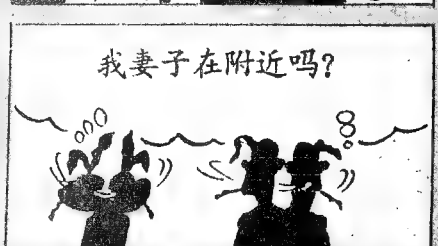 我妻子在附近吗？